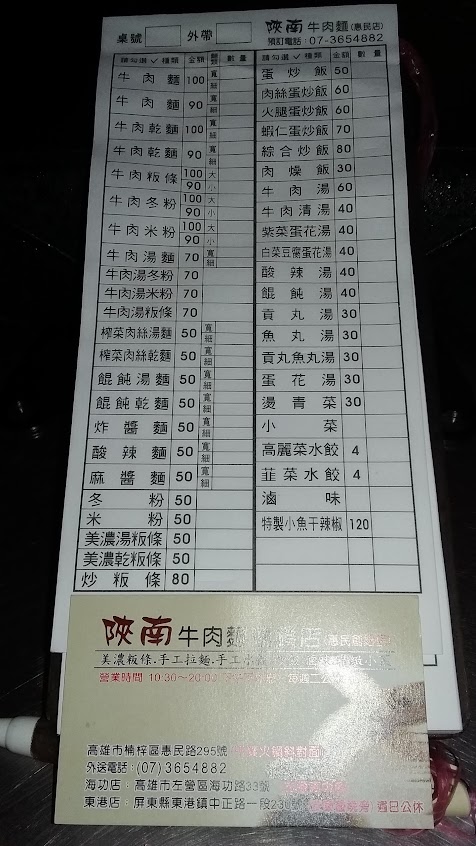 桌號 外帶
陝南牛肉麵(惠民店)
預訂電話：07-3654882
請勾選✓種類 金額 麵類 數量
牛肉麵 100 寬 細
牛肉麵 90 寬 細
牛肉乾麵 100 寬 細
牛肉乾麵 90 寬 細
牛肉粄條 100 大 90 小
牛肉冬粉 100 大 90 小
牛肉米粉 100 大 90 小
牛肉湯麵 70 寬 細
牛肉湯冬粉 70
牛肉湯米粉 70
牛肉湯粄條 70
榨菜肉絲湯麵 50 寬 細
榨菜肉絲乾麵 50 寬 細
餛飩湯麵 50 寬 細
餛飩乾麵 50 寬 細
炸醬麵 50 寬 細
酸辣麵 50 寬 細
麻醬麵 50 寬 細
冬粉 50
米粉 50
美濃湯粄條 50
美濃乾粄條 50
炒粄條 80
請勾選✓種類 金額 數量
蛋炒飯 50
肉絲蛋炒飯 60
火腿蛋炒飯 60
蝦仁蛋炒飯 70
綜合炒飯 80
肉燥飯 30
牛肉湯 60
牛肉清湯 40
紫菜蛋花湯 40
白菜豆腐蛋花湯 40
酸辣湯 40
餛飩湯 40
貢丸湯 30
魚丸湯 30
貢丸魚丸湯 30
蛋花湯 30
燙青菜 30
小菜
高麗菜水餃 4
韭菜水餃 4
滷味
特製小魚干辣椒 120
陝南牛肉麵
美濃粄條.手工拉麵.手工
營業時間 10:30~20:00
高雄市楠梓區惠民路295號
外送電話：(07)3654882
海功店：高雄市左營區海功路33號
東港店：屏東縣東港鎮中正路一段23 週日公休